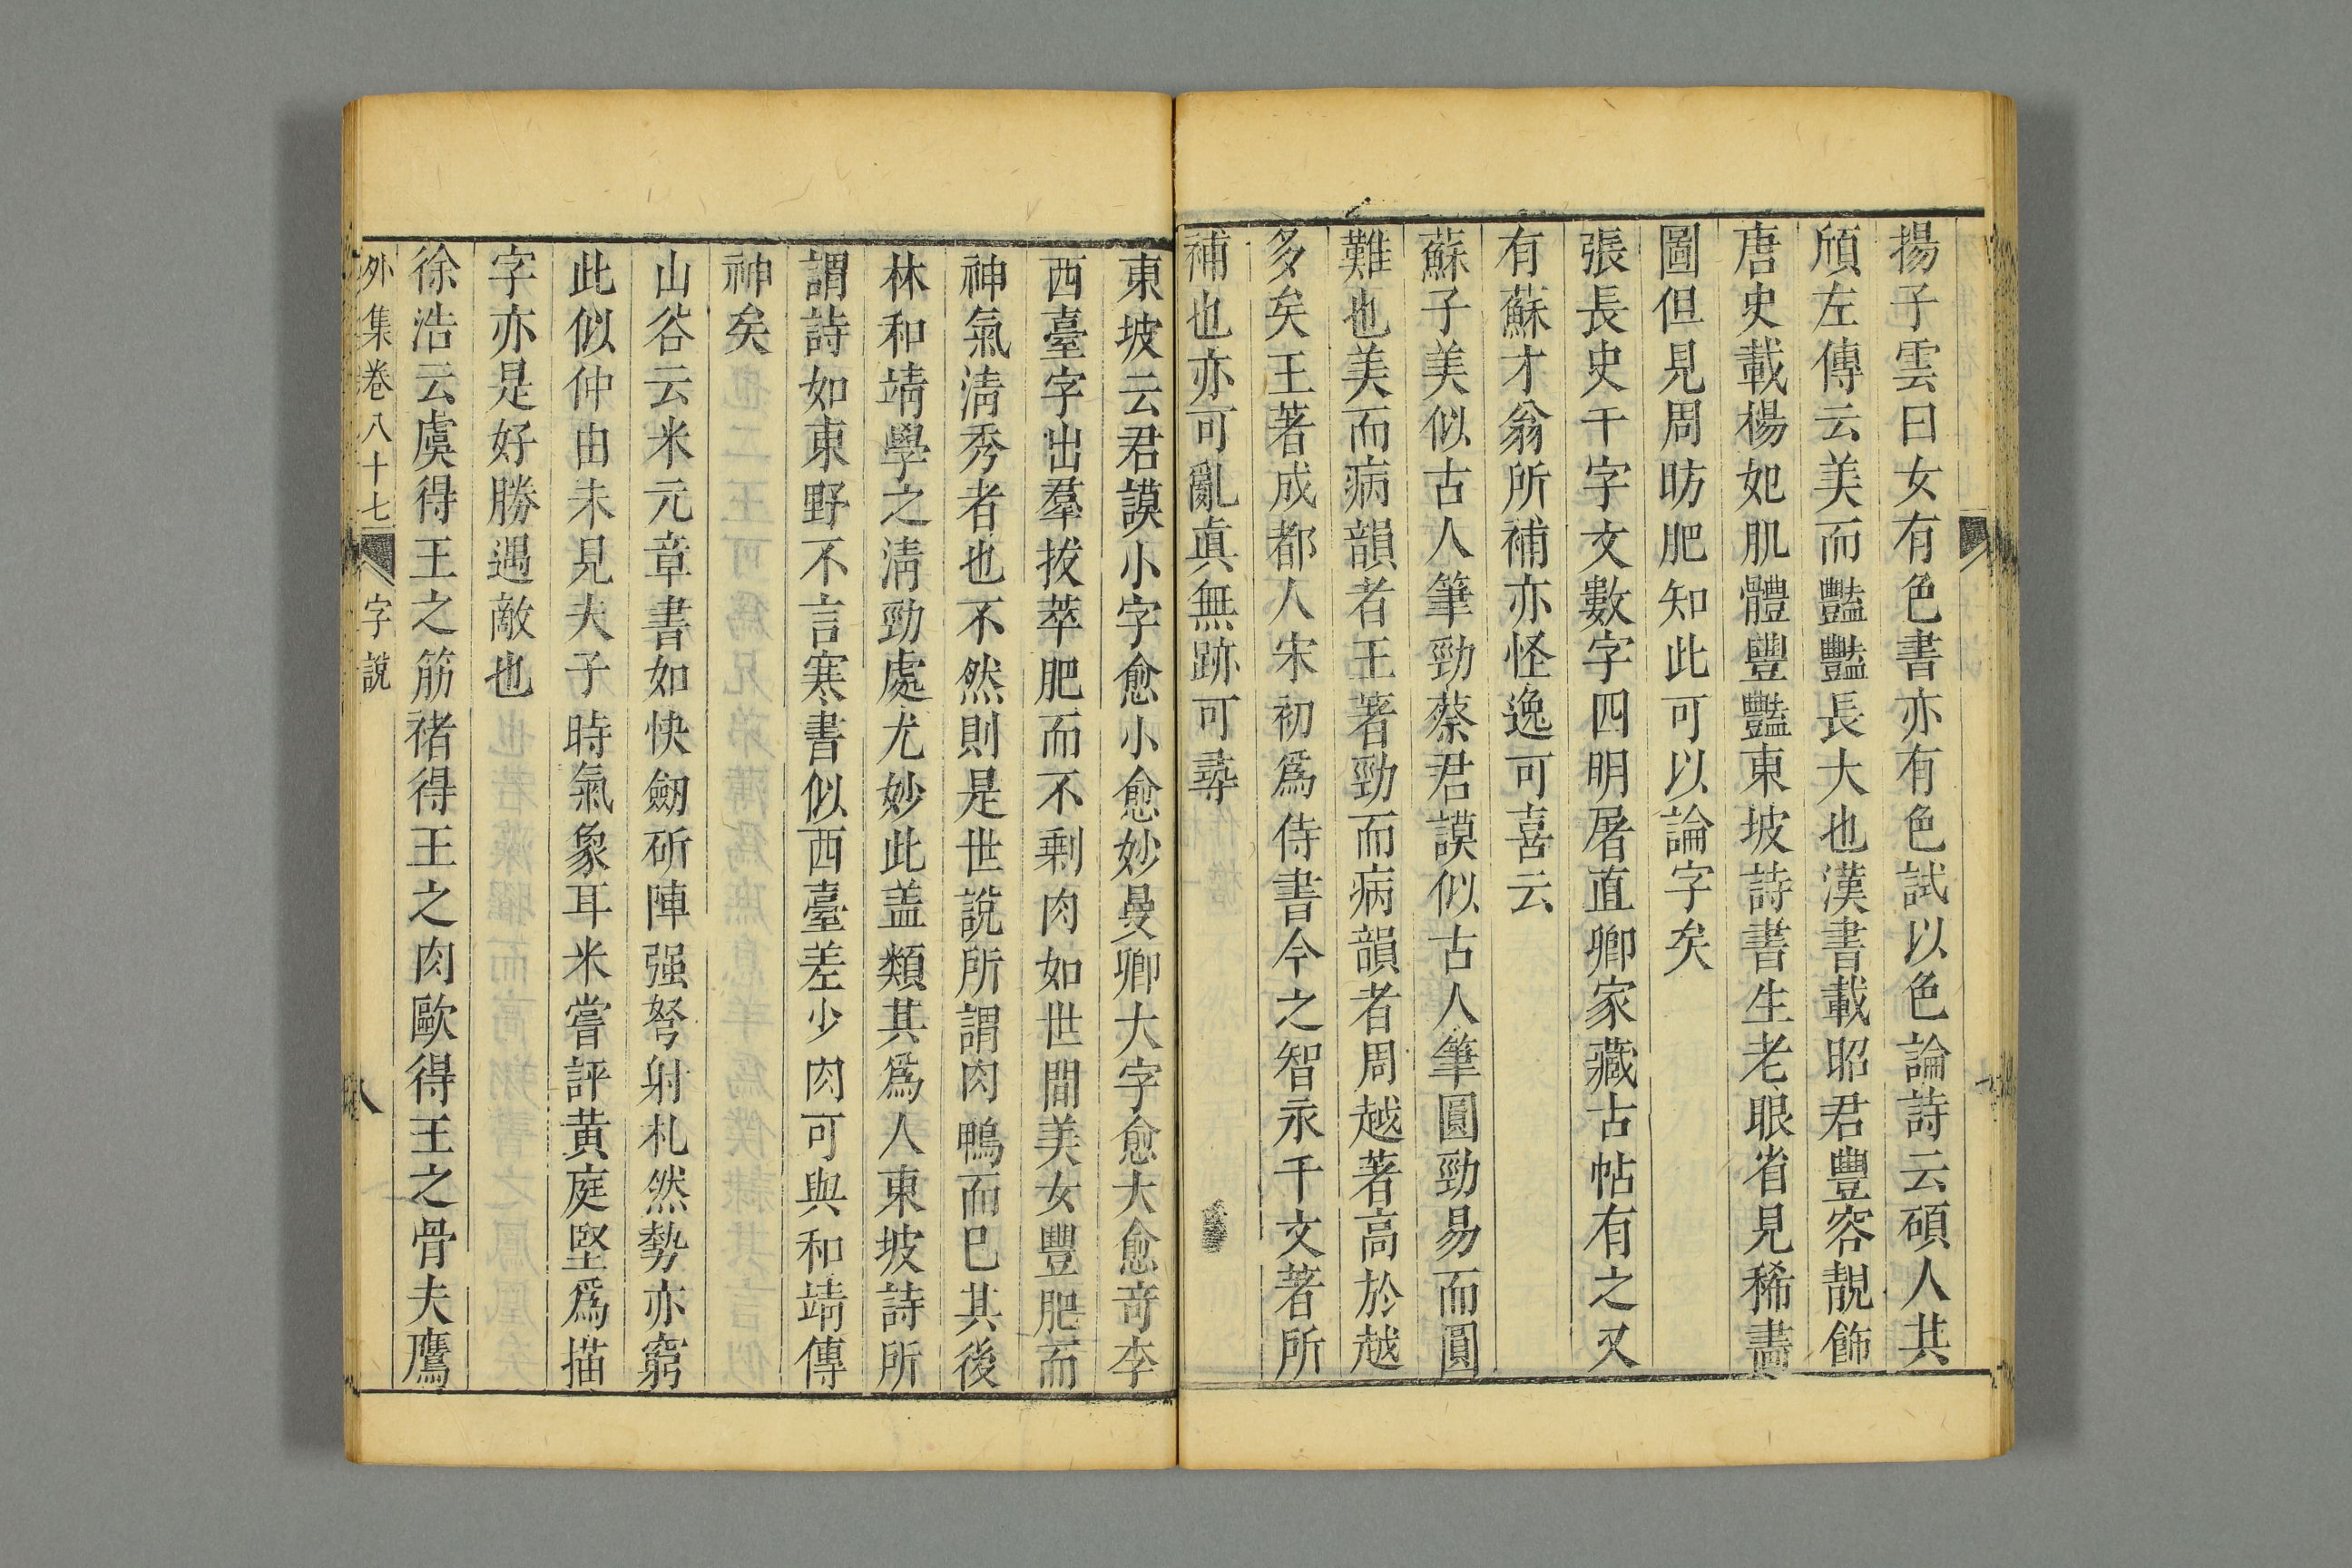 揚子雲曰女有色書亦有色試以色論詩云碩人其
頎左傳云美而豔豔長大也漢書載昭君豐容靚飾
唐史載楊妃肌體豐豔東坡詩書生老眼省見稀畫
圖但見周昉肥知此可以論字矣
張長史千字文數字四明屠直卿家藏古帖有之又
有蘇才翁所補亦怪逸可喜云
蘇子美似古人筆勁蔡君謨似古人筆圓勁易而圓
難也美而病韻者王著勁而病韻者周越著高於越
多矣王著成都人宋初爲侍書今之智永千文著所
補也亦可亂真無跡可尋
東坡云君謨小字愈小愈妙曼卿大字愈大愈竒李
西臺字出羣拔萃肥而不剩肉如世間美女豐肥而
神氣清秀者也不然則是世說所謂肉鴨而已其後
林和靖學之清勁處尤妙此盖類其爲人東坡詩所
謂詩如東野不言寒書似西臺差少肉可與和靖傳
神矣
山谷云米元章書如快劒斫陣强弩射札然勢亦窮
此似仲由未見夫子時氣象耳米嘗評黄庭堅爲描
字亦是好勝遇敵也
徐浩云虞得王之筋褚得王之肉歐得王之骨夫鷹
外集卷八十七 字說 八